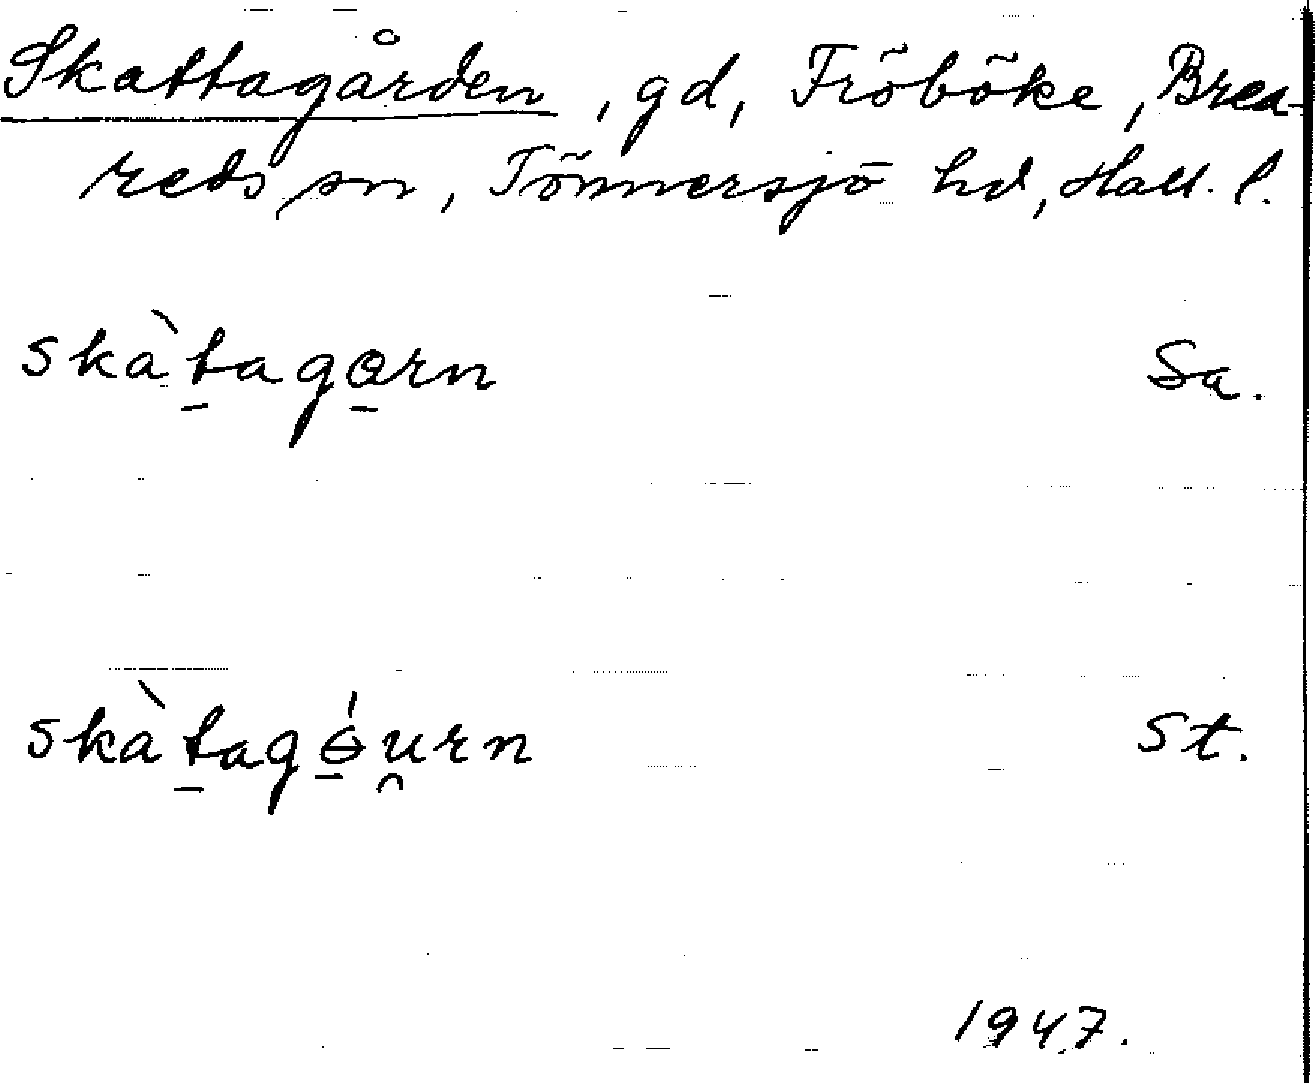 Skattagården, gd, Fröböke, Brea-
reds sn, Tönnersjö hd, Hall. l.
skàt̲ago̲rn Sa.
skàt̲agɵ̲́u̯rn St.
1947.